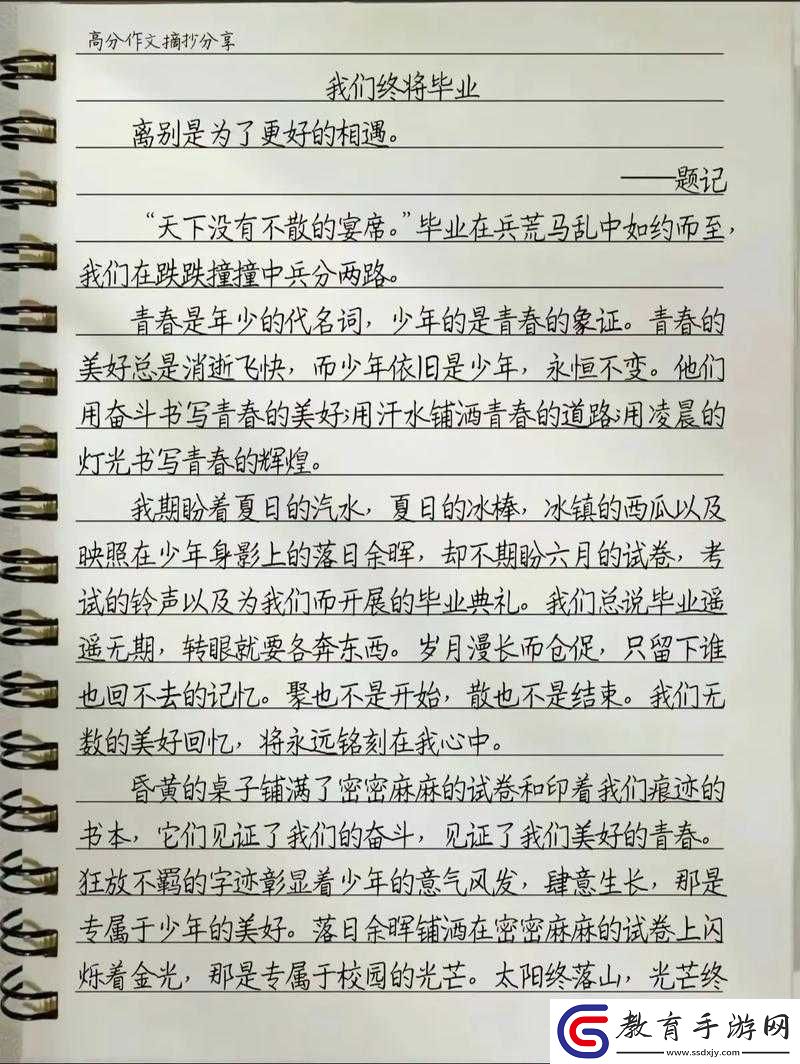 高分作文摘抄分享
我们终将毕业
离别是为了更好的相遇。
——题记
“天下没有不散的宴席。”毕业在兵荒马乱中如约而至，
我们在跌跌撞撞中兵分两路。
青春是年少的代名词，少年的是青春的象证。青春的
美好总是消逝飞快，而少年依旧是少年，永恒不变。他们
用奋斗书写青春的美好;用汗水铺洒青春的道路;用凌晨的
灯光书写青春的辉煌。
我期盼着夏日的汽水，夏日的冰棒，冰镇的西瓜以及
映照在少年身影上的落日余晖，却不期盼六月的试卷，考
试的铃声以及为我们而开展的毕业典礼。我们总说毕业遥
遥无期，转眼就要各奔东西。岁月漫长而仓促，只留下谁
也回不去的记忆。聚也不是开始，散也不是结束。我们无
数的美好回忆，将永远铭刻在我心中。
昏黄的桌子铺满了密密麻麻的试卷和印着我们痕迹的
书本，它们见证了我们的奋斗，见证了我们美好的青春。
狂放不羁的字迹彰显着少年的意气风发，肆意生长，那是
专属于少年的美好。落日余晖铺洒在密密麻麻的试卷上闪
烁着金光，那是专属于校园的光芒。太阳终落山，光芒终
教育手游网
www.ssdxjy.com